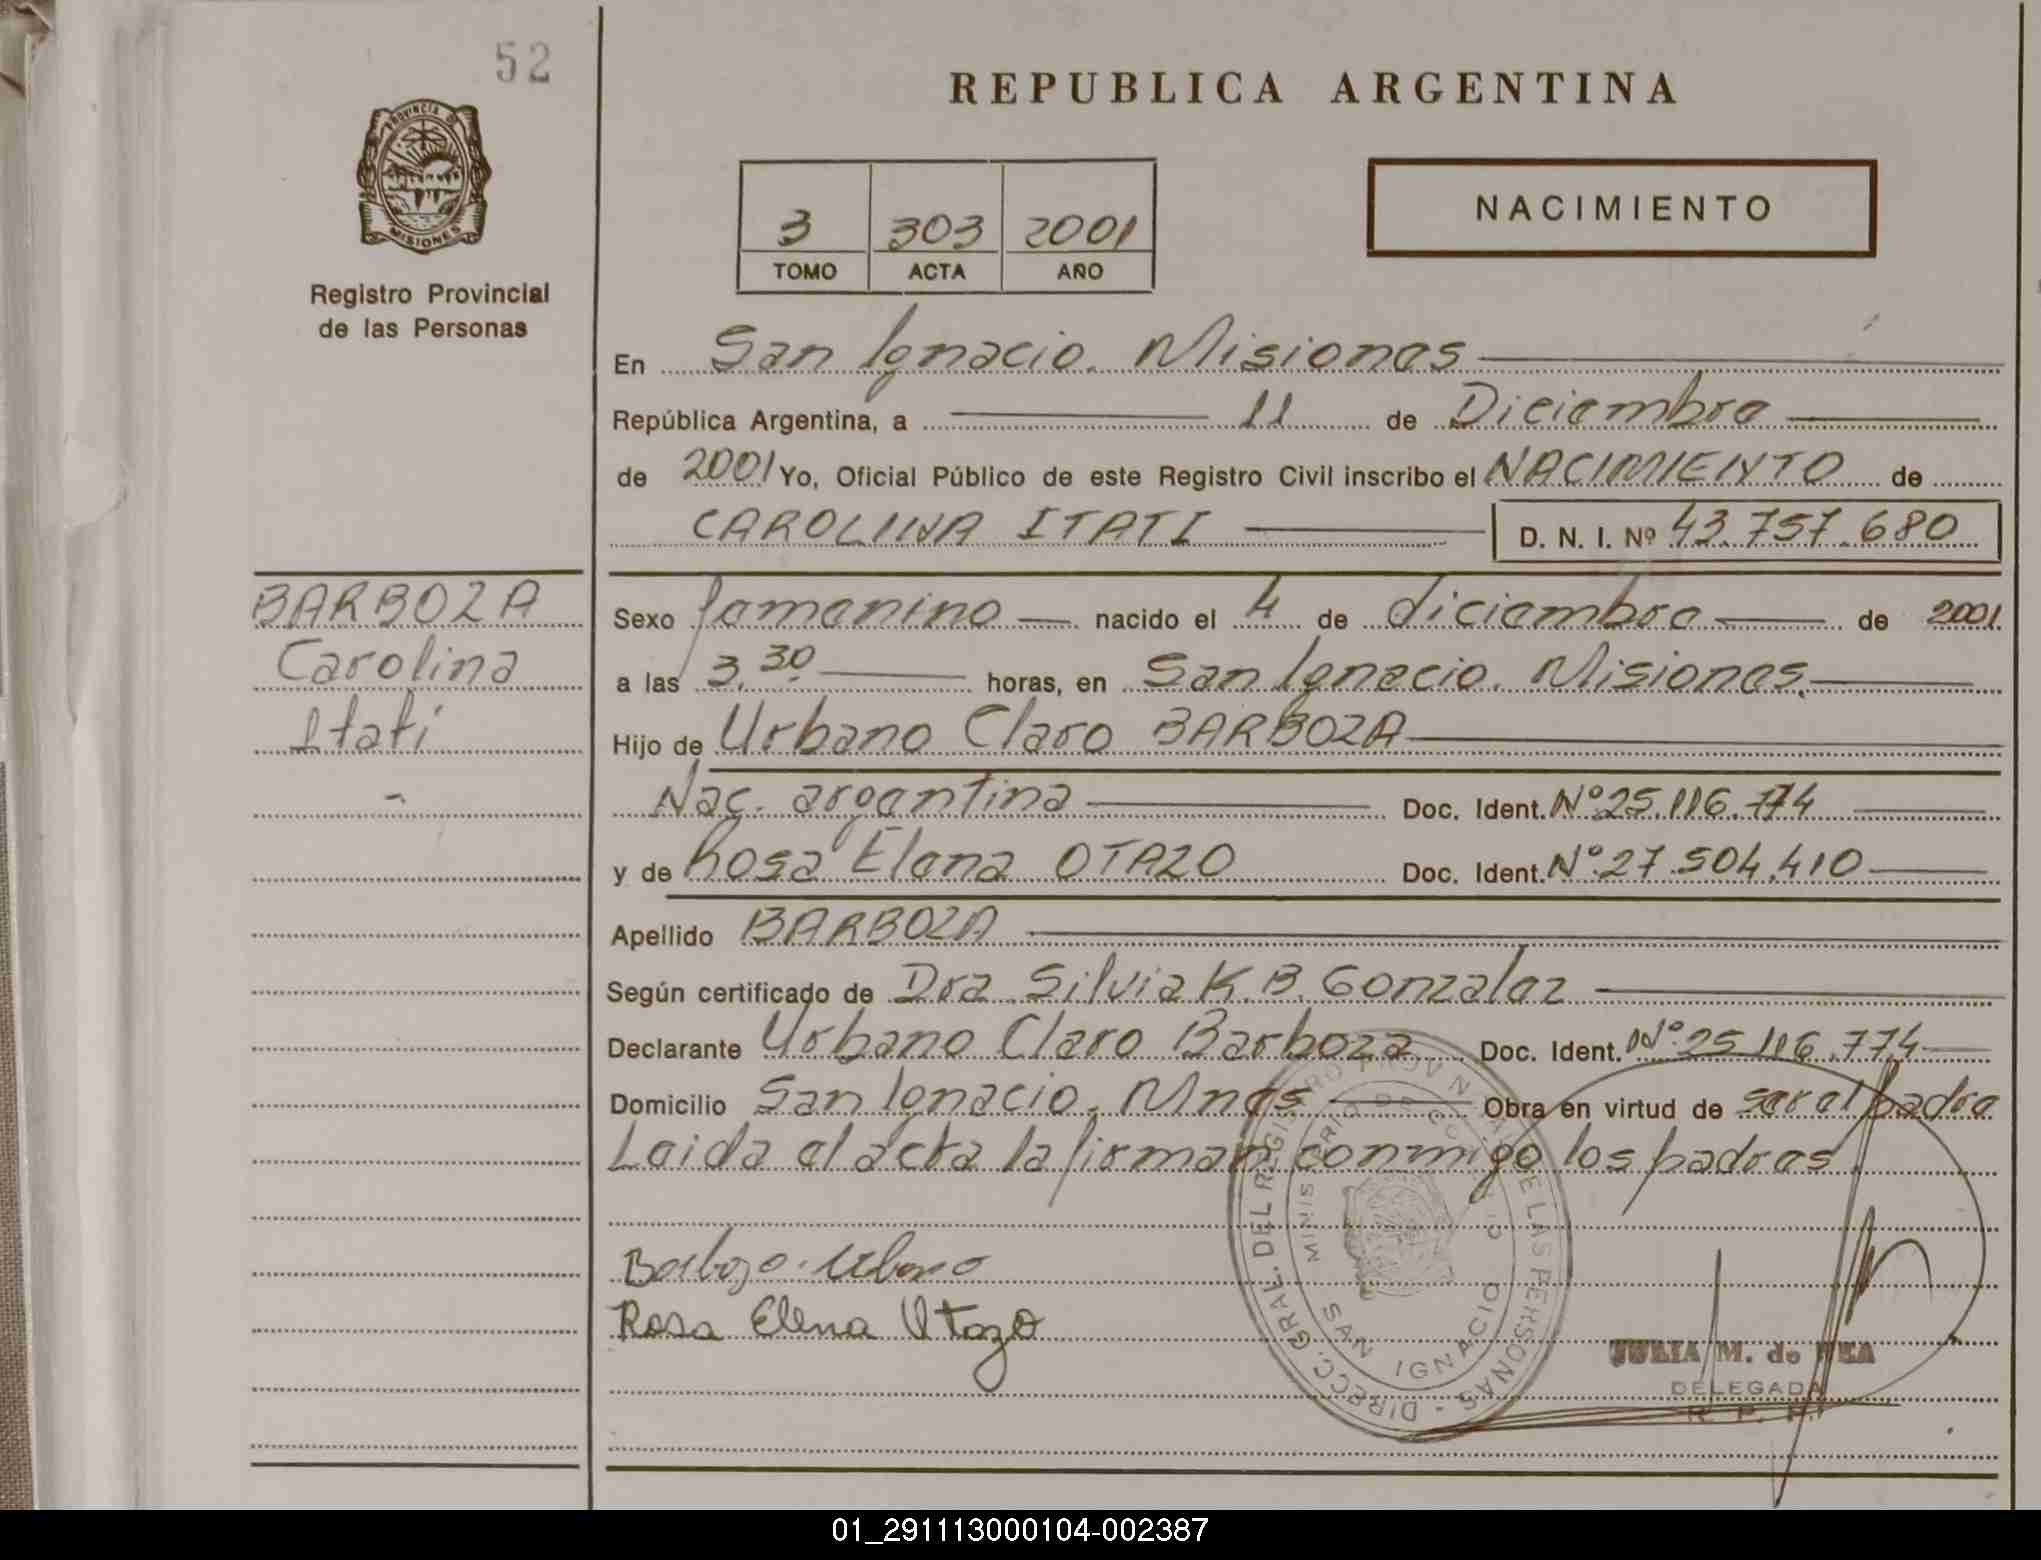 52
REPUBLICA ARGENTINA
PROVINCIA DE MISIONES
Registro Provincial
de las Personas
3 303 2001
TOMO ACTA AÑO
NACIMIENTO
En San Ignacio. Misiones
República Argentina, a 11 de Diciembre
de 2001 Yo, Oficial Público de este Registro Civil inscribo el NACIMIENTO de
CAROLINA ITATI D. N. I. Nº 43.757.680
BARBOZA
Carolina
Itati
Sexo femenino nacido el 4 de diciembre de 2001
a las 3.30 horas, en San Ignacio. Misiones.
Hijo de Urbano Claro BARBOZA
Nac. argentina Doc. Ident. Nº 25.116.774
y de Rosa Elena OTAZO Doc. Ident. Nº 27.504.410
Apellido BARBOZA
Según certificado de Dra Silvia K. B. Gonzalez
Declarante Urbano Claro Barboza Doc. Ident. Nº 25.116.774
Domicilio San Ignacio. Mnes Obra en virtud de ser el padre
Leida el acta la firman conmigo los padres.
Barbozo Urbano
Rosa Elena Otazo
DIRECC. GRAL. DEL REGISTRO PROVINCIAL DE LAS PERSONAS
MINISTERIO DE GOBIERNO
SAN IGNACIO
JULIA M. de REA
DELEGADA
R. P. P.
01_291113000104-002387